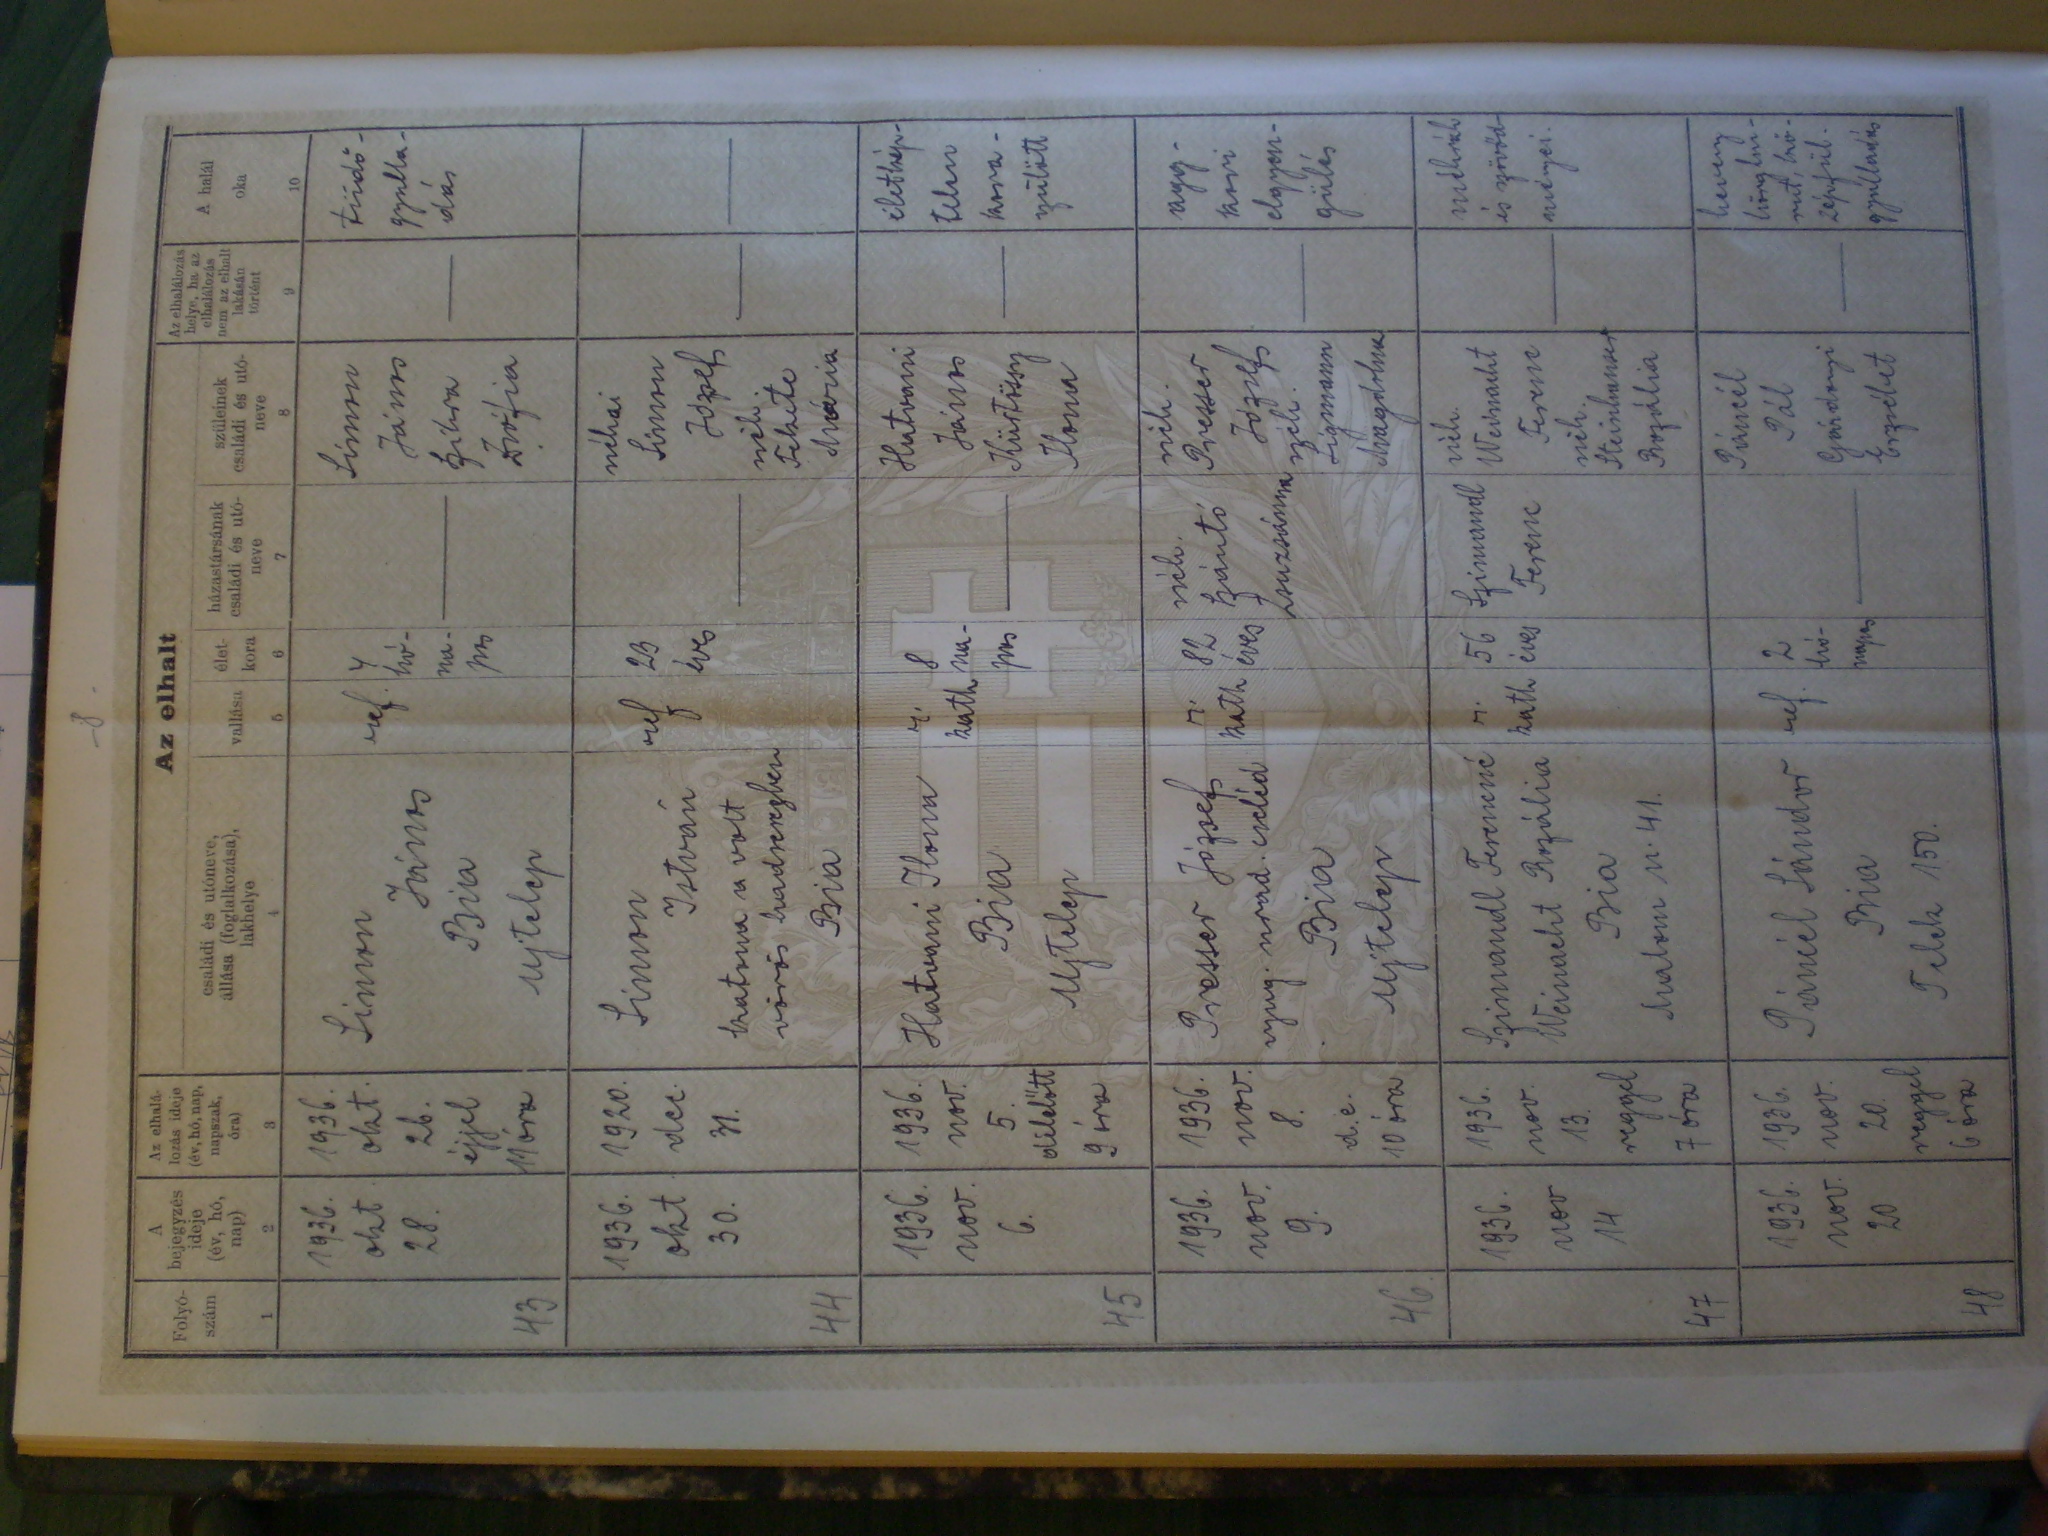 8.
Az elhalt
Folyó-
szám
A
bejegyzés
ideje
(év, hó,
nap)
Az elhalá-
lozás ideje
(év, hó, nap,
napszak,
óra)
családi és utóneve,
állása (foglalkozása),
lakhelye
vallása
élet-
kora
házastársának
családi és utó-
neve
szüleinek
családi és utó-
neve
Az elhalálozás
helye, ha az
elhalálozás
nem az elhalt
lakásán
történt
A halál
oka
1
2
3
4
5
6
7
8
9
10
43
1936.
okt.
28.
1936.
okt.
26.
éjjel
11 óra
Simon
János
Bia
Ujtelep
ref.
hó-
na-
pos
Simon
János
Zsófia
tüdő-
gyulla-
dás
44
1936.
okt.
30.
1920.
dec.
31.
Simon
István
katona a volt
vörös hadseregben
Bia
ref
23
éves
néhai
Simon
József
néh.
Fekete
Mária
45
1936.
nov.
6.
1936.
nov.
5.
délelőtt
9 óra
Hatvani Ilona
Bia
Ujtelep
r.
kath
8
na-
pos
Hatvani
János
Kürtössy
Ilona
életkép-
telen
kora-
szülött
46
1936.
nov.
9.
1936.
nov.
8.
d.e.
10 óra
Presser József
nyug. urad. cseléd
Bia
Ujtelep
r.
kath
82
éves
néh.
Szántó
Zsuzsánna
néh.
Presser
József
néh.
Sigmann
Magdolna
agg-
kori
elgyen-
gülés
47
1936.
nov
14
1936.
nov.
13.
reggel
7 óra
Szimandl Ferencné
Weinacht Rozália
Bia
Malom u. 41.
r.
kath
56
éves
Szimandl
Ferenc
néh.
Weinacht
Ferenc
néh.
Steinhauser
Rozália
méhrák
és szövőd-
ményei.
48
1936.
nov.
20
1936.
nov.
20.
reggel
6 óra
Páncél Sándor
Bia
Telek 150.
ref.
2
hó-
napos
Páncél
Pál
Gárdonyi
Erzsébet
heveny
hörghu-
rut,
középfül-
gyulladás